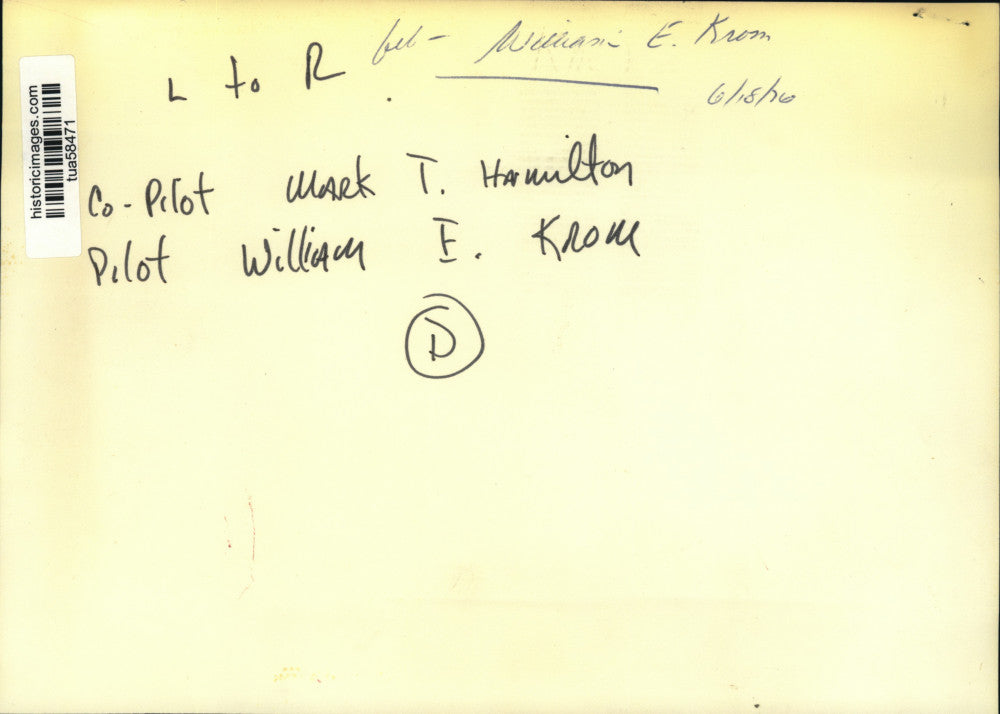 William E. Krom
L to R
6/18/76
Co-Pilot Mark T. Hamilton
Pilot William E. Krom
D
historicimages.com
tua58471